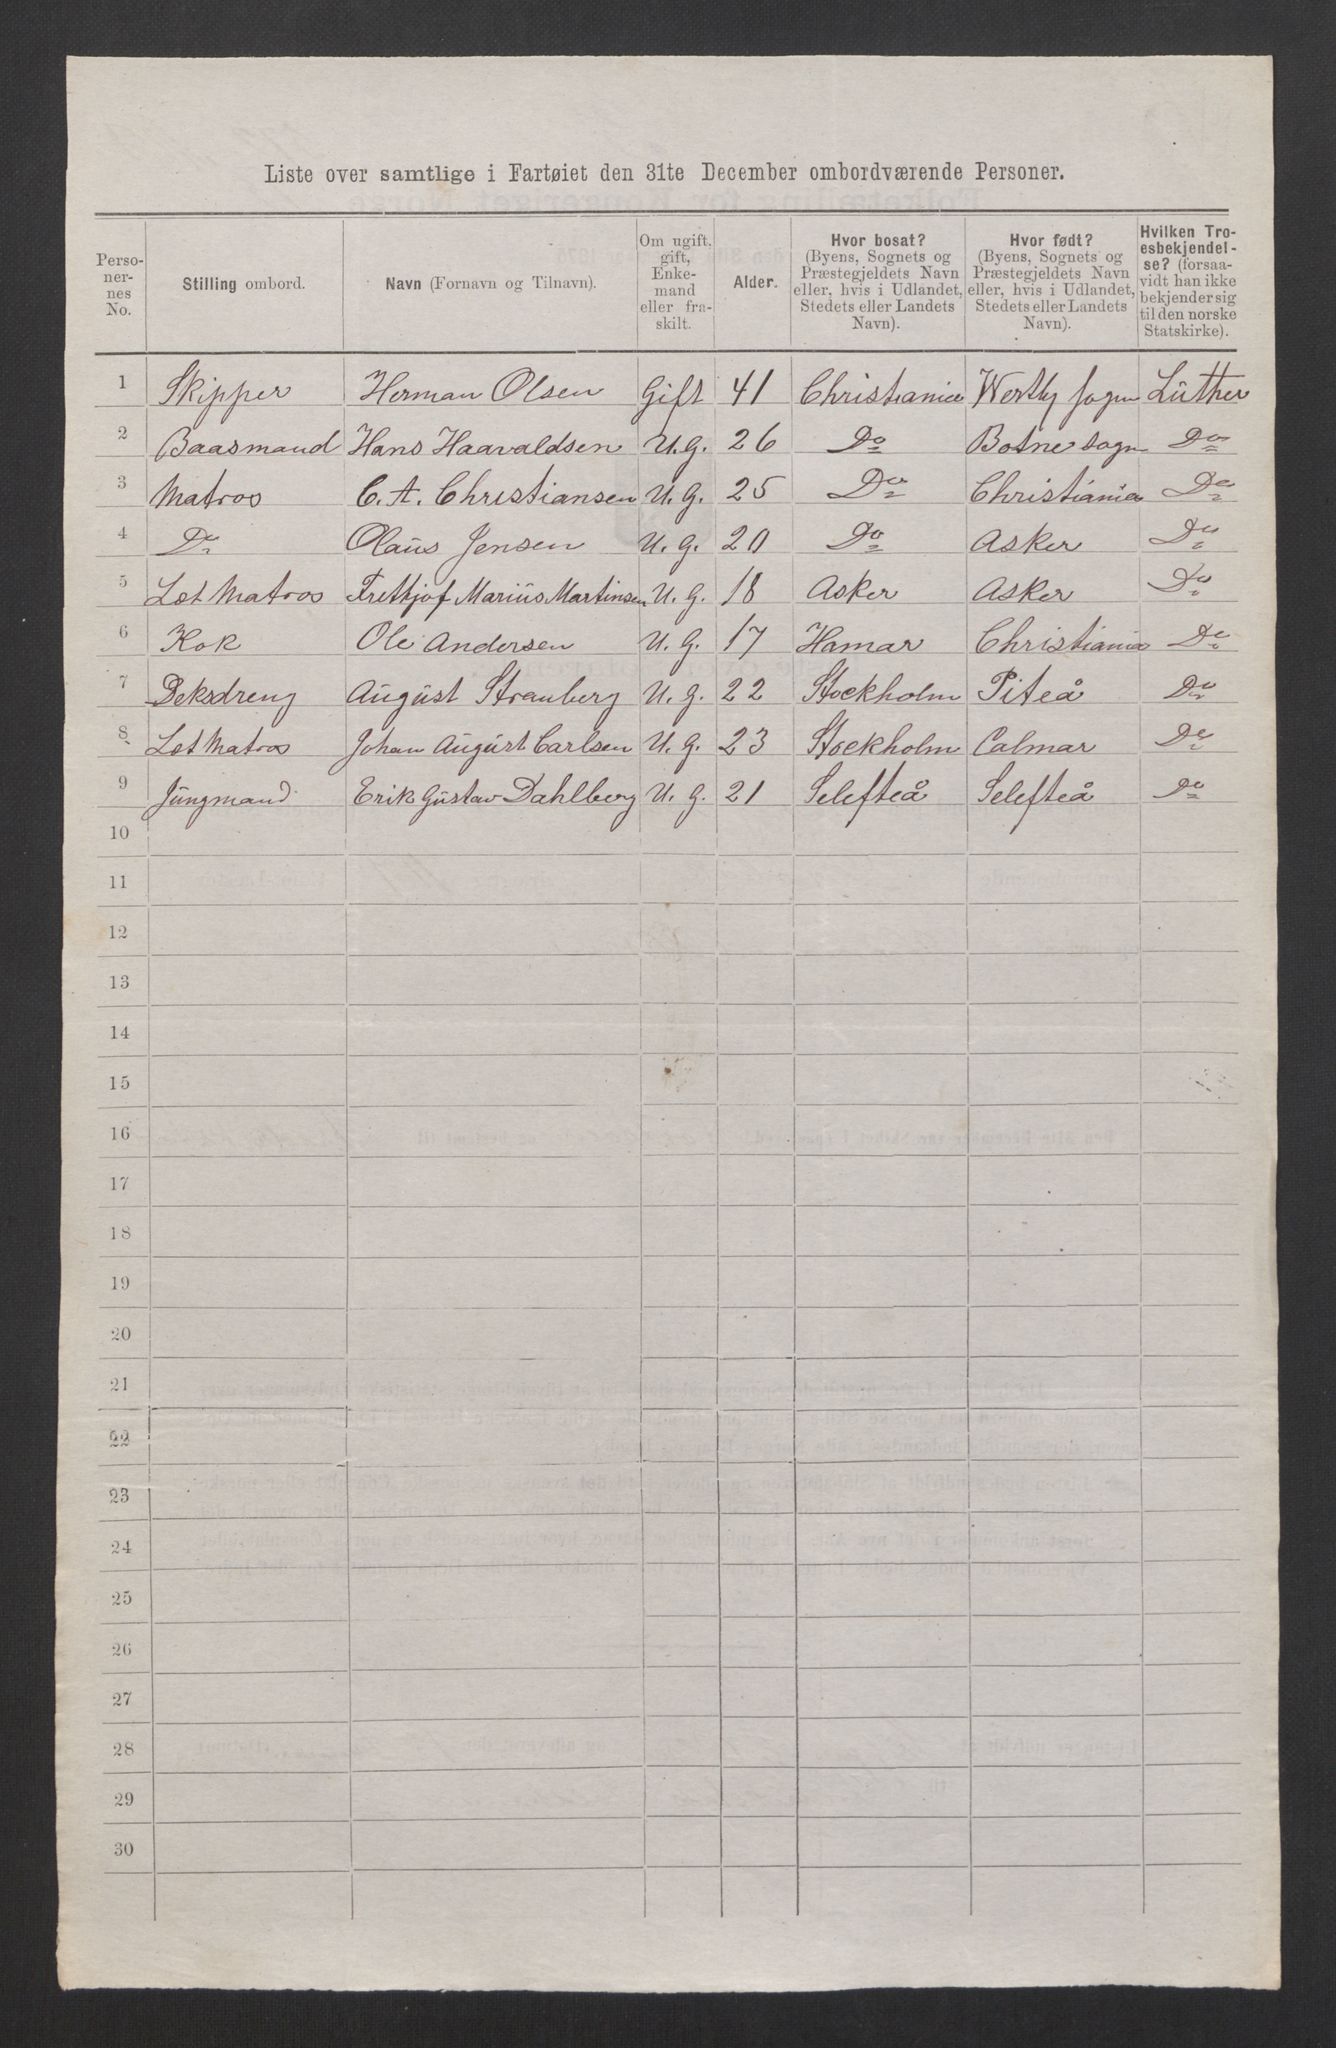 Liste over samtlige i Fartøiet den 31te December ombordværende Personer.
Perso-
ner-
nes
No.
Stilling ombord.
Navn (Fornavn og Tilnavn).
Om ugift,
gift,
Enke-
mand
eller fra-
skilt.
Alder.
Hvor bosat?
(Byens, Sognets og
Præstegjeldets Navn
eller, hvis i Udlandet,
Stedets eller Landets
Navn).
Hvor født?
(Byens, Sognets og
Præstegjeldets Navn
eller, hvis i Udlandet,
Stedets eller Landets
Navn).
Hvilken Tro-
esbekjendel-
se? (forsaa-
vidt han ikke
bekjender sig
til den norske
Statskirke).
1 Skipper Herman Olsen Gift 41 Christiania Sogn Lüther
2 Baasmand Hans Haavaldsen U.G. 26 Do Botne Sogn Do
3 Matros C. A. Christiansen U.G. 25 Do Christiania Do
4 Do Olaüs Jensen U.G. 20 Do Asker Do
5 Let Matros Frethjof Mariüs Martinsen U.G. 18 Asker Asker Do
6 Kok Ole Andersen U.G. 17 Hamar Christiania Do
7 Deksdreng Aügüst Stramberg U.G. 22 Stockholm Piteå Do
8 Let Matros Johan Aügüst Carlsen U.G. 23 Stockholm Calmar Do
9 Jüngmand Erik Güstav Dahlberg U.G. 21 Selefteå Selefteå Do
10
11
12
13
14
15
16
17
18
19
20
21
22
23
24
25
26
27
28
29
30